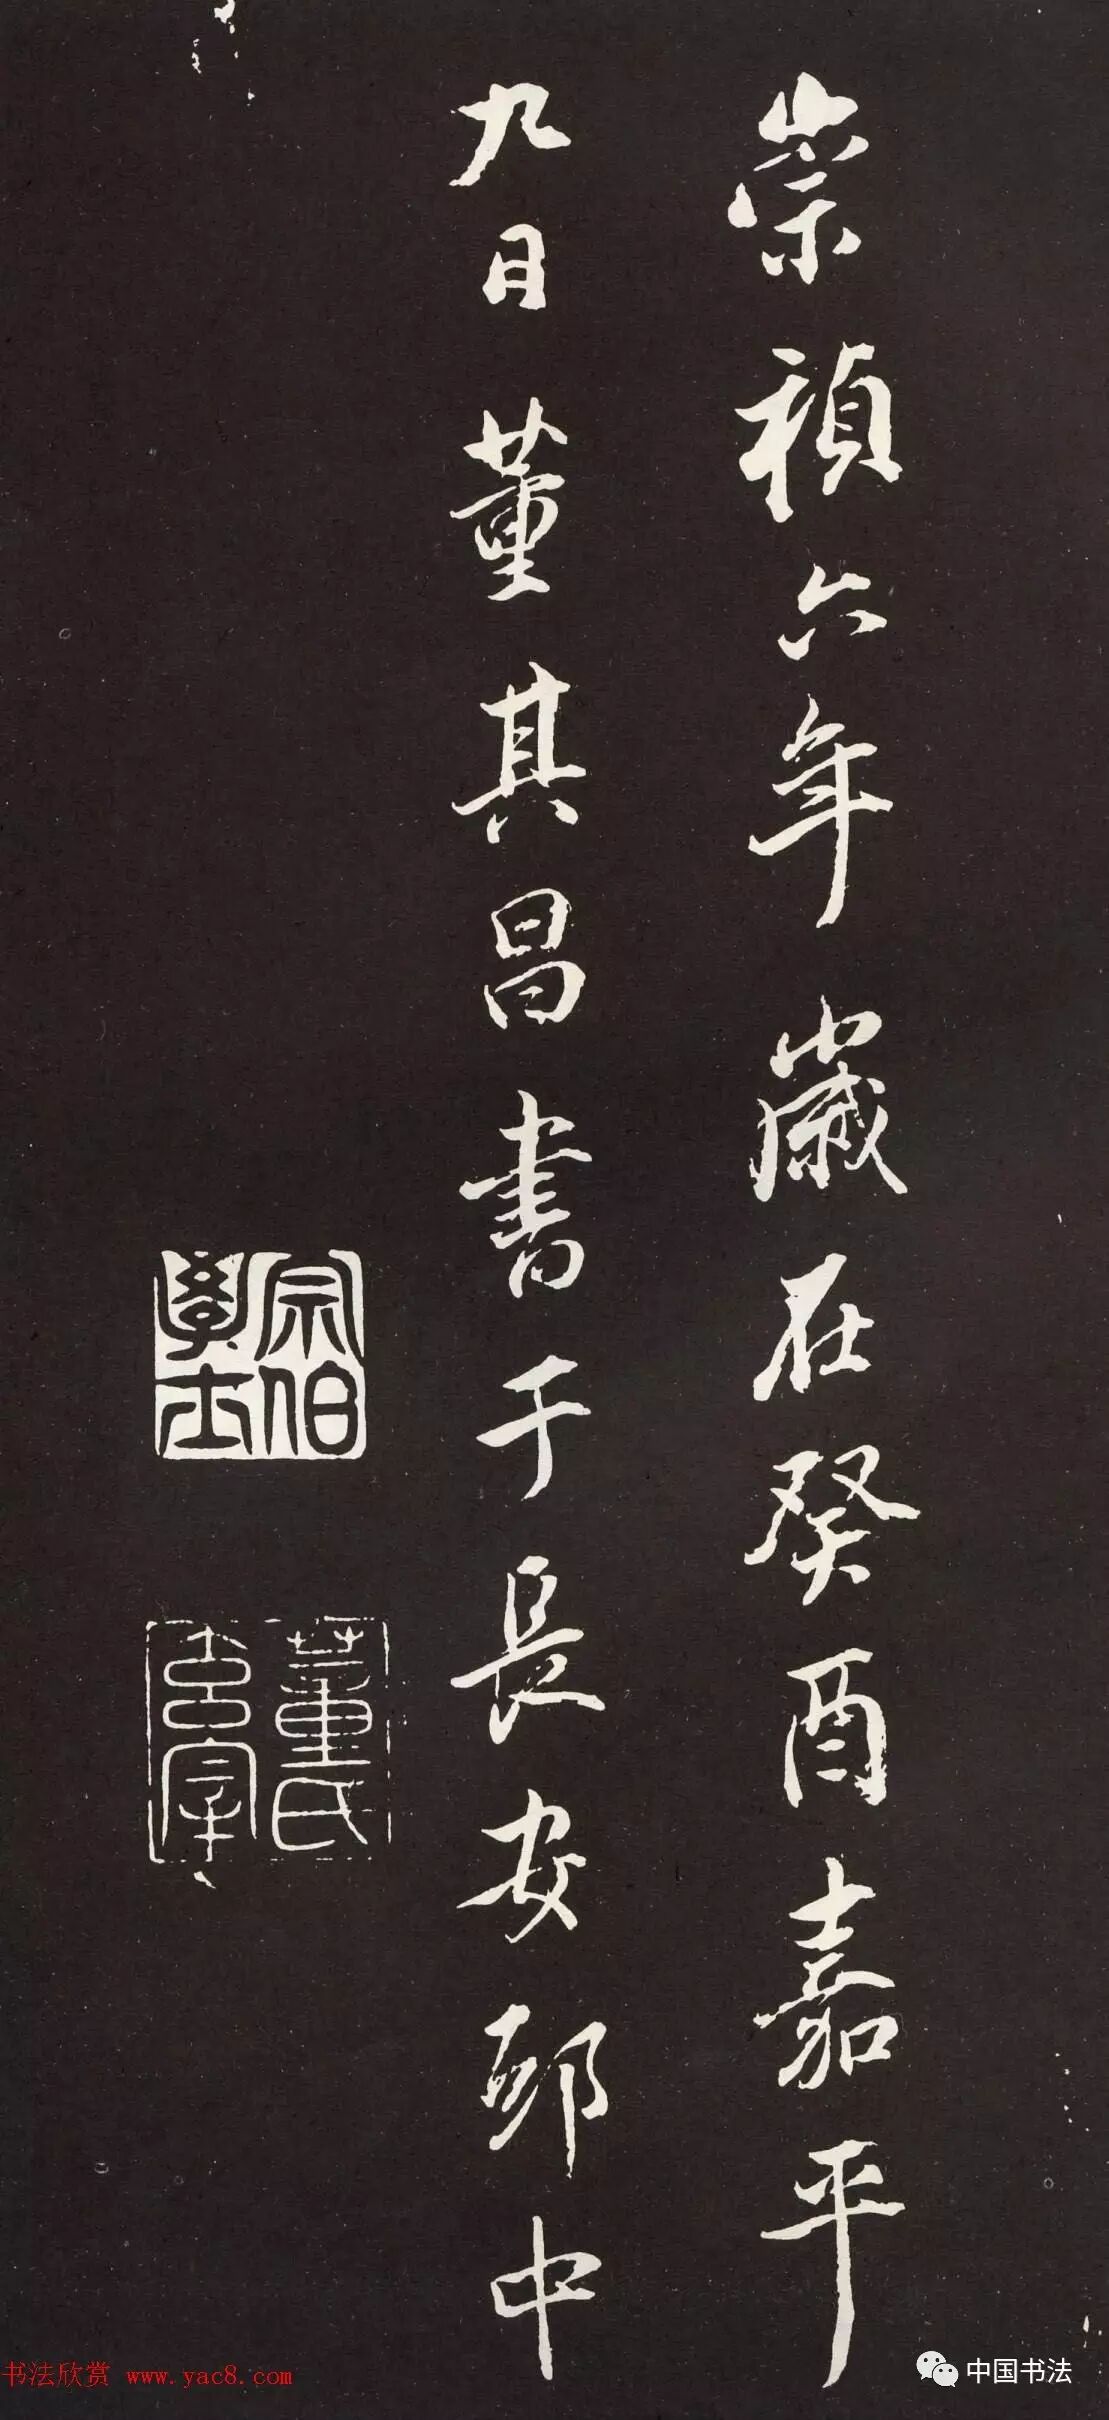 崇禎六年歲在癸酉嘉平
九日董其昌書于長安邸中
宗伯學士
董氏玄宰
书法欣赏 www.yac8.com
中国书法